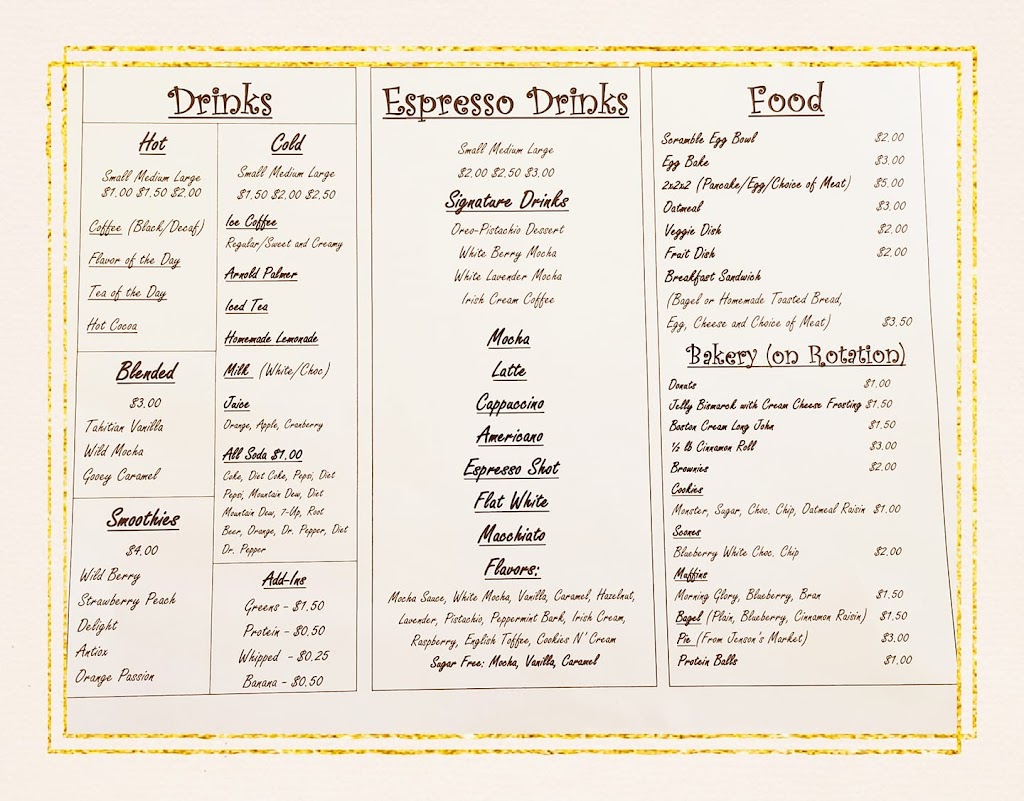 Drinks
Hot
Small Medium Large
$1.00 $1.50 $2.00
Coffee (Black/Decaf)
Flavor of the Day
Tea of the Day
Hot Cocoa
Blended
$3.00
Tahitian Vanilla
Wild Mocha
Gooey Caramel
Smoothies
$4.00
Wild Berry
Strawberry Peach
Delight
Antiox
Orange Passion
Cold
Small Medium Large
$1.50 $2.00 $2.50
Ice Coffee
Regular/Sweet and Creamy
Arnold Palmer
Iced Tea
Homemade Lemonade
Milk (White/Choc)
Juice
Orange, Apple, Cranberry
All Soda $1.00
Coke, Diet Coke, Pepsi, Diet
Pepsi, Mountain Dew, Diet
Mountain Dew, 7-Up, Root
Beer, Orange, Dr. Pepper, Diet
Dr. Pepper
Add-Ins
Greens - $1.50
Protein - $0.50
Whipped - $0.25
Banana - $0.50
Espresso Drinks
Small Medium Large
$2.00 $2.50 $3.00
Signature Drinks
Oreo-Pistachio Dessert
White Berry Mocha
White Lavender Mocha
Irish Cream Coffee
Mocha
Latte
Cappuccino
Americano
Espresso Shot
Flat White
Macchiato
Flavors:
Mocha Sauce, White Mocha, Vanilla, Caramel, Hazelnut,
Lavender, Pistachio, Peppermint Bark, Irish Cream,
Raspberry, English Toffee, Cookies N' Cream
Sugar Free: Mocha, Vanilla, Caramel
Food
Scramble Egg Bowl $2.00
Egg Bake $3.00
2x2x2 (Pancake/Egg/Choice of Meat) $5.00
Oatmeal $3.00
Veggie Dish $2.00
Fruit Dish $2.00
Breakfast Sandwich
(Bagel or Homemade Toasted Bread,
Egg, Cheese and Choice of Meat) $3.50
Bakery (on Rotation)
Donuts $1.00
Jelly Bismarck with Cream Cheese Frosting $1.50
Boston Cream Long John $1.50
½ lb Cinnamon Roll $3.00
Brownies $2.00
Cookies
Monster, Sugar, Choc. Chip, Oatmeal Raisin $1.00
Scones
Blueberry White Choc. Chip $2.00
Muffins
Morning Glory, Blueberry, Bran $1.50
Bagel (Plain, Blueberry, Cinnamon Raisin) $1.50
Pie (From Jenson's Market) $3.00
Protein Balls $1.00